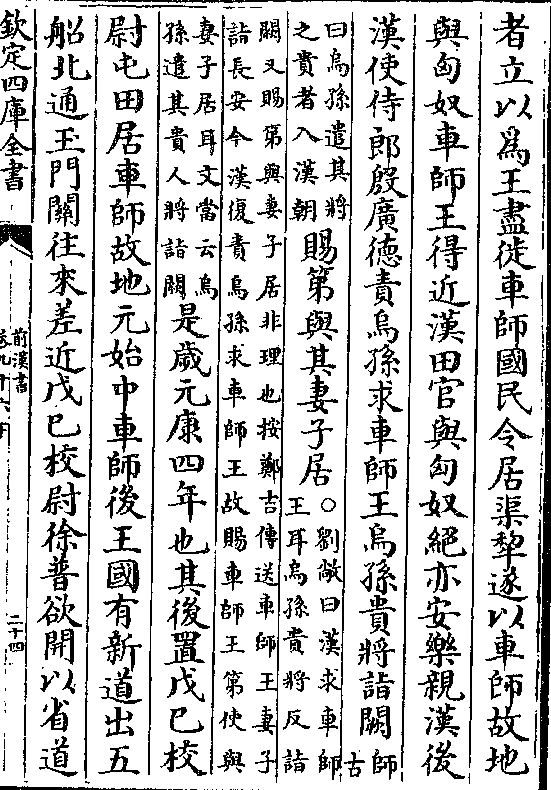 者立以為王盡徙車師國民令居渠犂遂以車師故地
與匈奴車師王得近漢田官與匈奴絕亦安樂親漢後
漢使侍郎殷廣德責烏孫求車師王烏孫貴將詣闕師古
曰烏孫遣其將
之貴者入漢朝
賜第與其妻子居
○劉敞曰漢求車師
王耳烏孫貴將反詣
闕又賜第與妻子居非理也按鄭吉傳送車師王妻子
詣長安今漢復責烏孫求車師王故賜車師王第使與
妻子居耳文當云烏
孫遣其貴人將詣闕
是歲元康四年也其後置戊已校
尉屯田居車師故地元始中車師後王國有新道出五
船北通玉門關往來差近戊已校尉徐普欲開以省道
欽定四庫全書
前漢書
卷九十六下
二十四